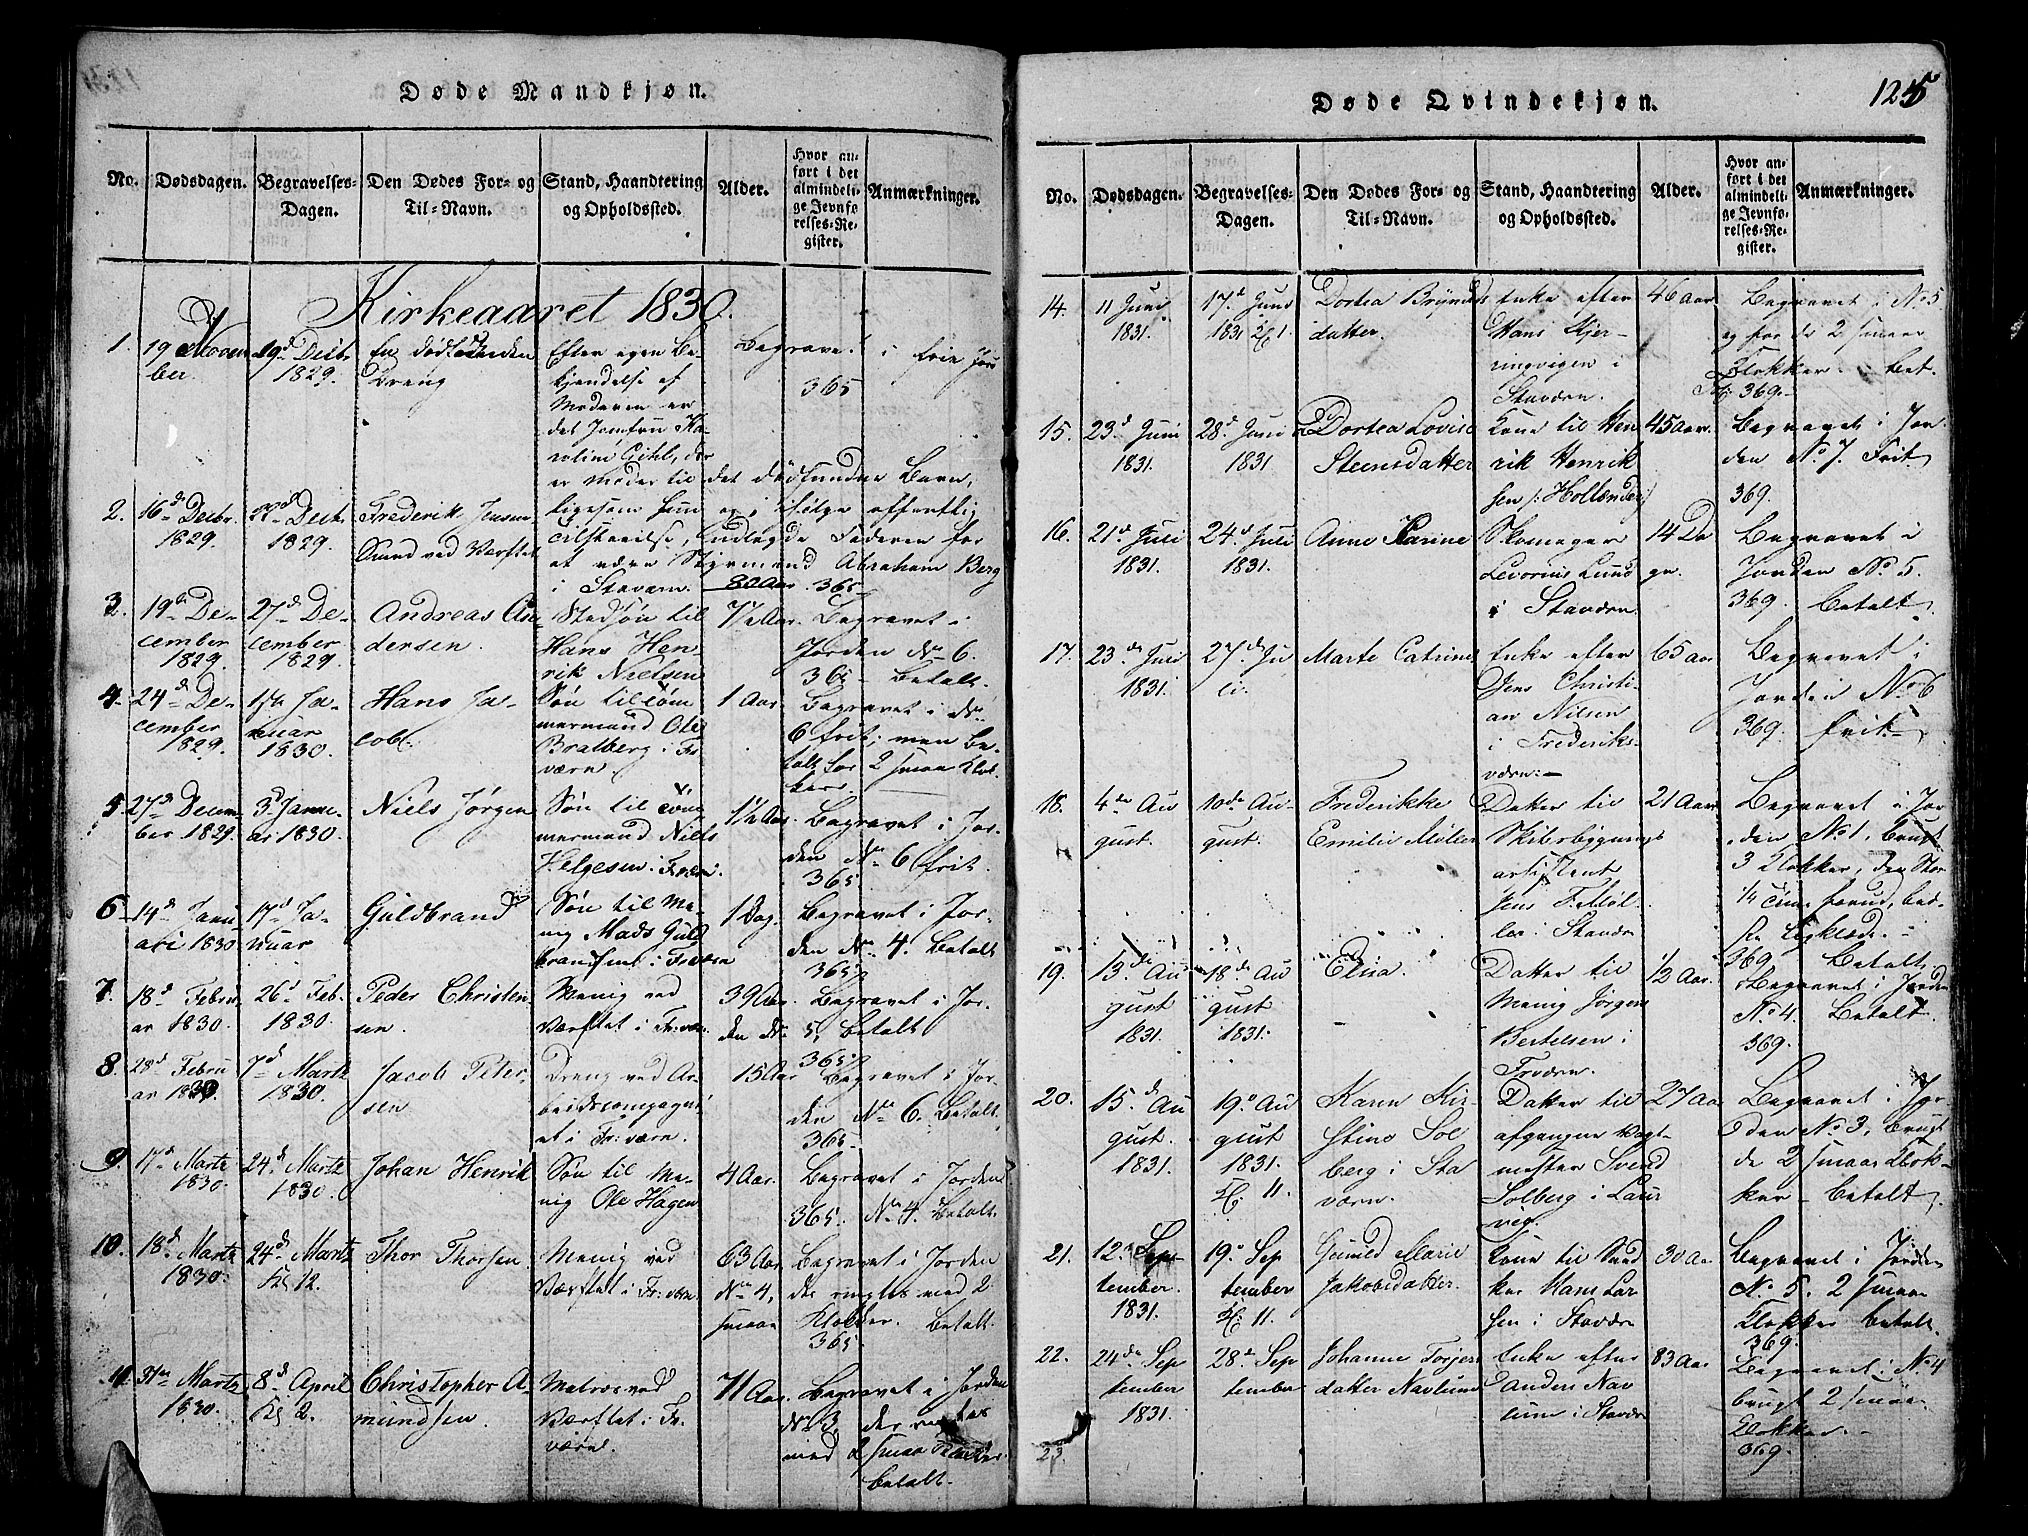 Døde Mandkjøn.
No.
Dødsdagen.
Begravelses-
Dagen.
Den Dødes For- og
Til-Navn.
Stand, Haandtering
og Opholdssted.
Alder.
Hvor an-
ført i det
almindeli-
ge Jevnfø-
relses-Re-
gister.
Anmærkninger.
Kirkeaaret 1830.
1.
19 Novem
ber.
19d Decbr
1829.
En dødfunden
Dreng
Efter egen Be-
kjendelse af
Moderen er
det Jomfru Ka-
roline Gihl, der
er Moder til det dødfundne Barn,
ligesom hun og i følge offentlig
Tilstaaelse, udlagde Faderen for
at være Styrmand Abraham Berg
i Stavern.
Begravet i frie Jord
365
2.
16d Decbr.
1829.
27d Decbr.
1829.
Frederik Jensen
Qvand ved Værftet
80 Aar. 365
3.
19de De-
cember
1829.
27d De-
cember
1829.
Andreas An-
dersen.
Stedsøn til
Hans Hen
rik Nielsen
7½ Aar.
Begravet i
Jorden No 6.
365 - Betalt.
4.
24de De-
cember
1829.
1ste Ja-
nuar
1830.
Hans Ja-
cob.
Søn til Tøm
mermand Ole
Bratberg i Fr
værn
1 Aar
Begravet i No
6 frit, men be-
talt for 2 smaa Klok
ker.
5.
27d Decem
ber 1829.
3d Janu-
ar 1830.
Niels Jørgen
Søn til Tøm
mermand Niels
Helgesen i Frværn.
1½ Aar.
Begravet i Jor-
den No 6 frit
365
6.
14d Janu
ari 1830
17d Ja-
nuar
Guldbrand
Søn til Me-
nig Mads Guld
brandsen i Frværn
1 Dag.
Begravet i Jor-
den No 4. Betalt
365
7.
18d Febru
ar 1830.
26d Feb.
1830.
Peder Christen
sen.
Menig ved
Værftet i Fr:værn
39 Aar.
Begravet i Jor-
den No 5, betalt
365
8.
28d Febru
ar 1830.
7d Martz
1830.
Jacob Peter
sen
Dreng ved Ar-
beidscompagni
et i Fr:værn.
15 Aar
Begravet i Jor-
den No 6. Betalt
365
9.
17d Martz
1830.
24d Martz
1830.
Johan Henrik
Søn til Me-
nig Ole Hagen
4 Aar.
Begravet i Jorden
365. No 4. Betalt
10.
18d Martz
1830.
24d Martz
Kl 12.
Thor Thorsen
Menig ved
Værftet i Fr:værn
63 Aar
Begravet i Jorden
No 4, der ringtes med 2
smaa Klokker. Betalt.
365
11.
31te Martz
1830.
8d April
Kl 2.
Christopher A-
mundsen.
Matros ved
Værftet i Fr.
værn.
71 Aar.
Begravet i Jorden
No 3, der ringtes
med 2 smaa Klokker
betalt.
Døde Qvindekjøn.
125
No.
Dødsdagen.
Begravelses-
Dagen.
Den Dødes For- og
Til-Navn.
Stand, Haandtering
og Opholdssted.
Alder.
Hvor an-
ført i det
almindeli-
ge Jevnfø-
relses-Re-
gister.
Anmærkninger.
14.
11 Juni
1831.
17d Juni
1831 Kl 1.
Dortea Brynilds
datter.
Enke efter
Hans Kjer-
ringvigen i
Stavern.
46 Aar
Begravet i No 5
og for de 2 smaae
Klokker - bet.
369.
15.
23d Juni
1831.
28d Juni
1831
Dortea Lovise
Steensdatter
Kone til Hen
rik Henrik
sen /: Hollænder
45 Aar.
Begravet i Jor
den No 7. Frit
369.
16.
21d Juli
1831.
24d Juli
1831.
Anne Karine
Skomager
Levorius Lund
i Stavern
14 Da
ge.
Begravet i
Jorden No 5.
369. Betalt
17.
23de Juli
1831.
27de Ju
li.
Marte Catrine
Enke efter
Jens Christi-
an Nilsen
i Frederiks-
værn.
65 Aar
Begravet i
Jorden No 6
369. frit
18.
4de Au
gust.
10de Au-
gust.
Frederikke
Emilie Møller
Datter til
Skibsbygnings
assistent
Jens F. Møl-
ler i Stavern
21 Aar
Begravet i Jor
den No 1, brugt
3 Klokker, den Stor
¼ Time forud, bed-
ste Ligklæde.
369. Betalt.
19.
13de Au
gust
1831.
18de Au
gust
1831.
Elisa.
Datter til
Menig Jørgen
Bertelsen i
Frværn.
½ Aar.
Begravet i Jorden
No 4. Betalt.
369.
20.
15.de Au
gust.
1831.
19de Au
gust
1831.
Kl: 11.
Karen Kir-
stine Sol
berg i Sta
værn.
Datter til
afgangne Vagt-
mester Svend
Solberg i Laur
vig.
27 Aar
Begravet i Jor-
den No 3, brugt
de 2 smaa Klok-
ker - betalt
21.
12. Sep
tember
1831.
19de Sep
tember
Kl: 11.
Gunild Marie
Jakobsdatter.
Kone til Sned
ker Hans Lar
sen i Stavern
30 Aar
Begravet i Jorden
No 5. 2 smaa
Klokker betalt.
369.
22.
24de Sep
tember
1831.
28de Sep
tember
Johanne Torjers
datter Navlum
Enke efter
Anders Nav
lum i Stavern
83 Aar
Begravet i No 4
brugt 2 smaa
Klokker.
369.
23.